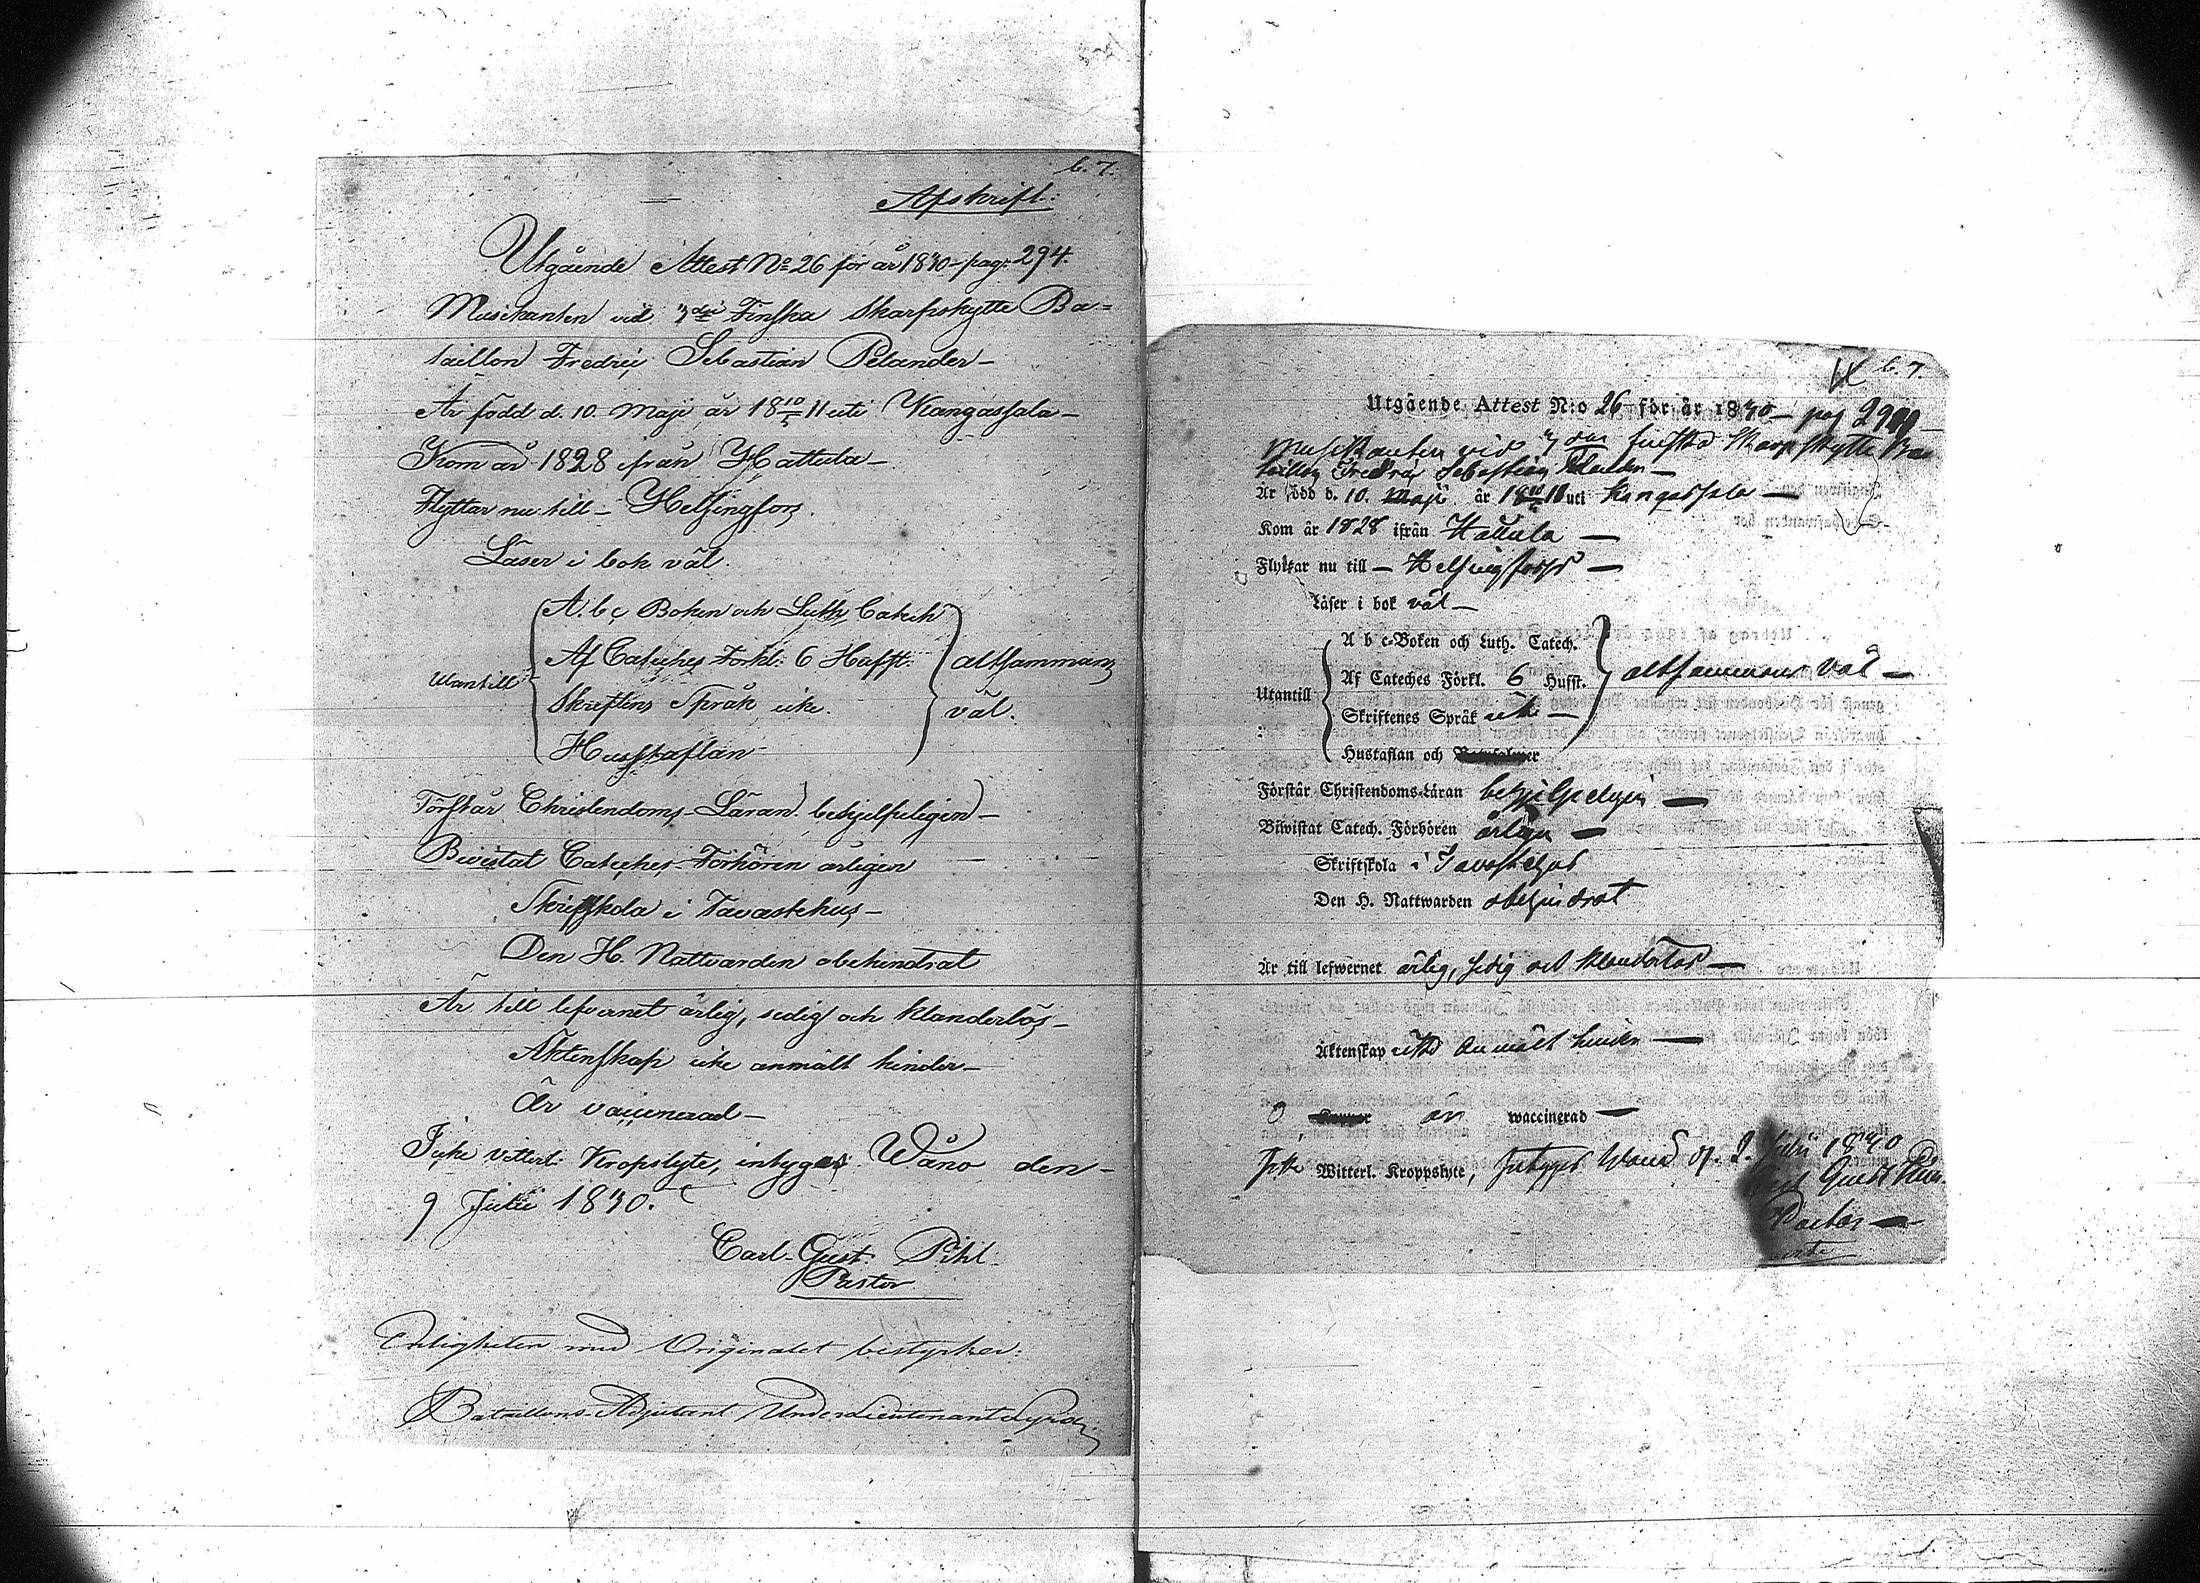 6. 7.
Afskrift:
Utgående Attest No 26 för år 1830 - pag: 294.
Musikanten vid 3dje Finska Skarpskytte Ba=
taillon Fredric Sebastian Pelander -
Är född d. 10. Maji år 18 10/5 11 uti Kangassala -
Kom år 1828 ifrån Hattula -
Flyttar nu till - Helsingfors.
Läser i bok väl.
A. b. c Boken och Luth. Catech
Af Cateches Förkl: 6 Hufst.
altsammans
Utantill
Skriftens Språk icke.
väl.
Husstaflan
Förstår Christendoms-Läran behjelpeligen -
Bivistat Cateches-Förhören årligen
Skriftskola i Tavastehus -
Den H. Nattvarden obehindrat
Är till lefvernet ärlig, sedig och klanderlös -
Äktenskap icke anmält hinder -
Är vaccinerad -
Icke vitterl. Kropslyte, intygas. Wånå den -
9 Julii 1830.
Carl Gust. Pihl.
Pastor
Enligheten med Originalet bestyrker:
Bataillons-Adjutant Underlieutenant
6. 7.
Utgående Attest N:o 26 för år 1830 - pag 294
Musikanten vid 3dje finska Skarpskytte Ba
taillon Fredric Sebastian Pelander -
Är född d. 10. Maji år 18 10/5 11 uti Kangassala -
Kom år 1828 ifrån Hattula -
Flyttar nu till - Helsingfors -
Läser i bok väl -
A b c-Boken och Luth. Catech.
Af Cateches Förkl. 6 Hufst.
altsammans väl -
Utantill
Skriftenes Språk icke -
Hustaflan och
Förstår Christendoms-Läran behjelpeligen -
Biwistat Catech. Förhören årligen -
Skriftskola i Tavastehus
Den H. Nattwarden obehindrat
Är till lefwernet ärlig, sedig och klanderlös -
Äktenskap icke anmält hinder -
är waccinerad -
Icke Witterl. Kroppslyte, intygas Wånå d. 9. Julii 1830
Carl Gust Pihl
Pastor -